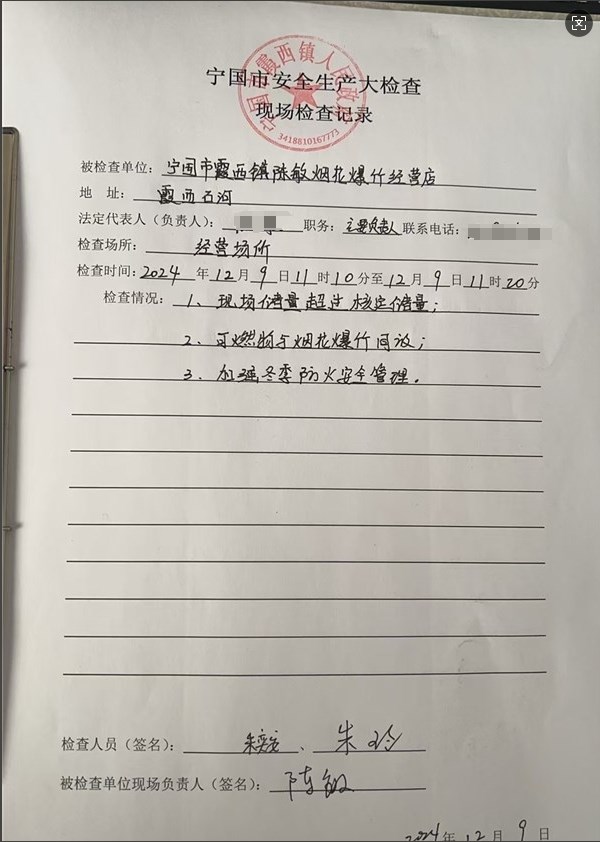 宁国市安全生产大检查
现场检查记录
宁国市霞西镇人民政府
3418810167773
被检查单位：宁国市霞西镇陈敏烟花爆竹经营店
地 址：霞西石河
法定代表人（负责人）： 职务：主要负责人 联系电话：
检查场所：经营场所
检查时间：2024 年 12 月 9 日 11 时 10 分至 12 月 9 日 11 时 20 分
检查情况：1、现场储量超过核定储量；
2、可燃物与烟花爆竹同放；
3、加强冬季防火安全管理。
检查人员（签名）： 、朱玲
被检查单位现场负责人（签名）：陈敏
2024 年 12 月 9 日